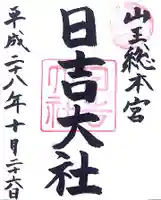 山王総本宮
日吉大社
平成二八年十月二十六日